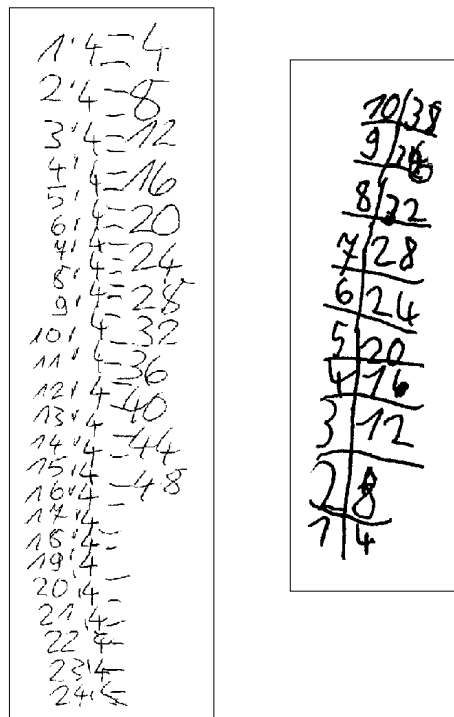 1·4=4
2·4=8
3·4=12
4·4=16
5·4=20
6·4=24
7·4=28
8·4=32
9·4=36
10·4=40
11·4=44
12·4=48
13·4
14·4
15·4
16·4=
17·4=
18·4=
19·4=
20·4=
21·4=
22·4=
23·4=
24·
10 38
9
8 32
7 28
6 24
5 20
4 16
3 12
2 8
1 4